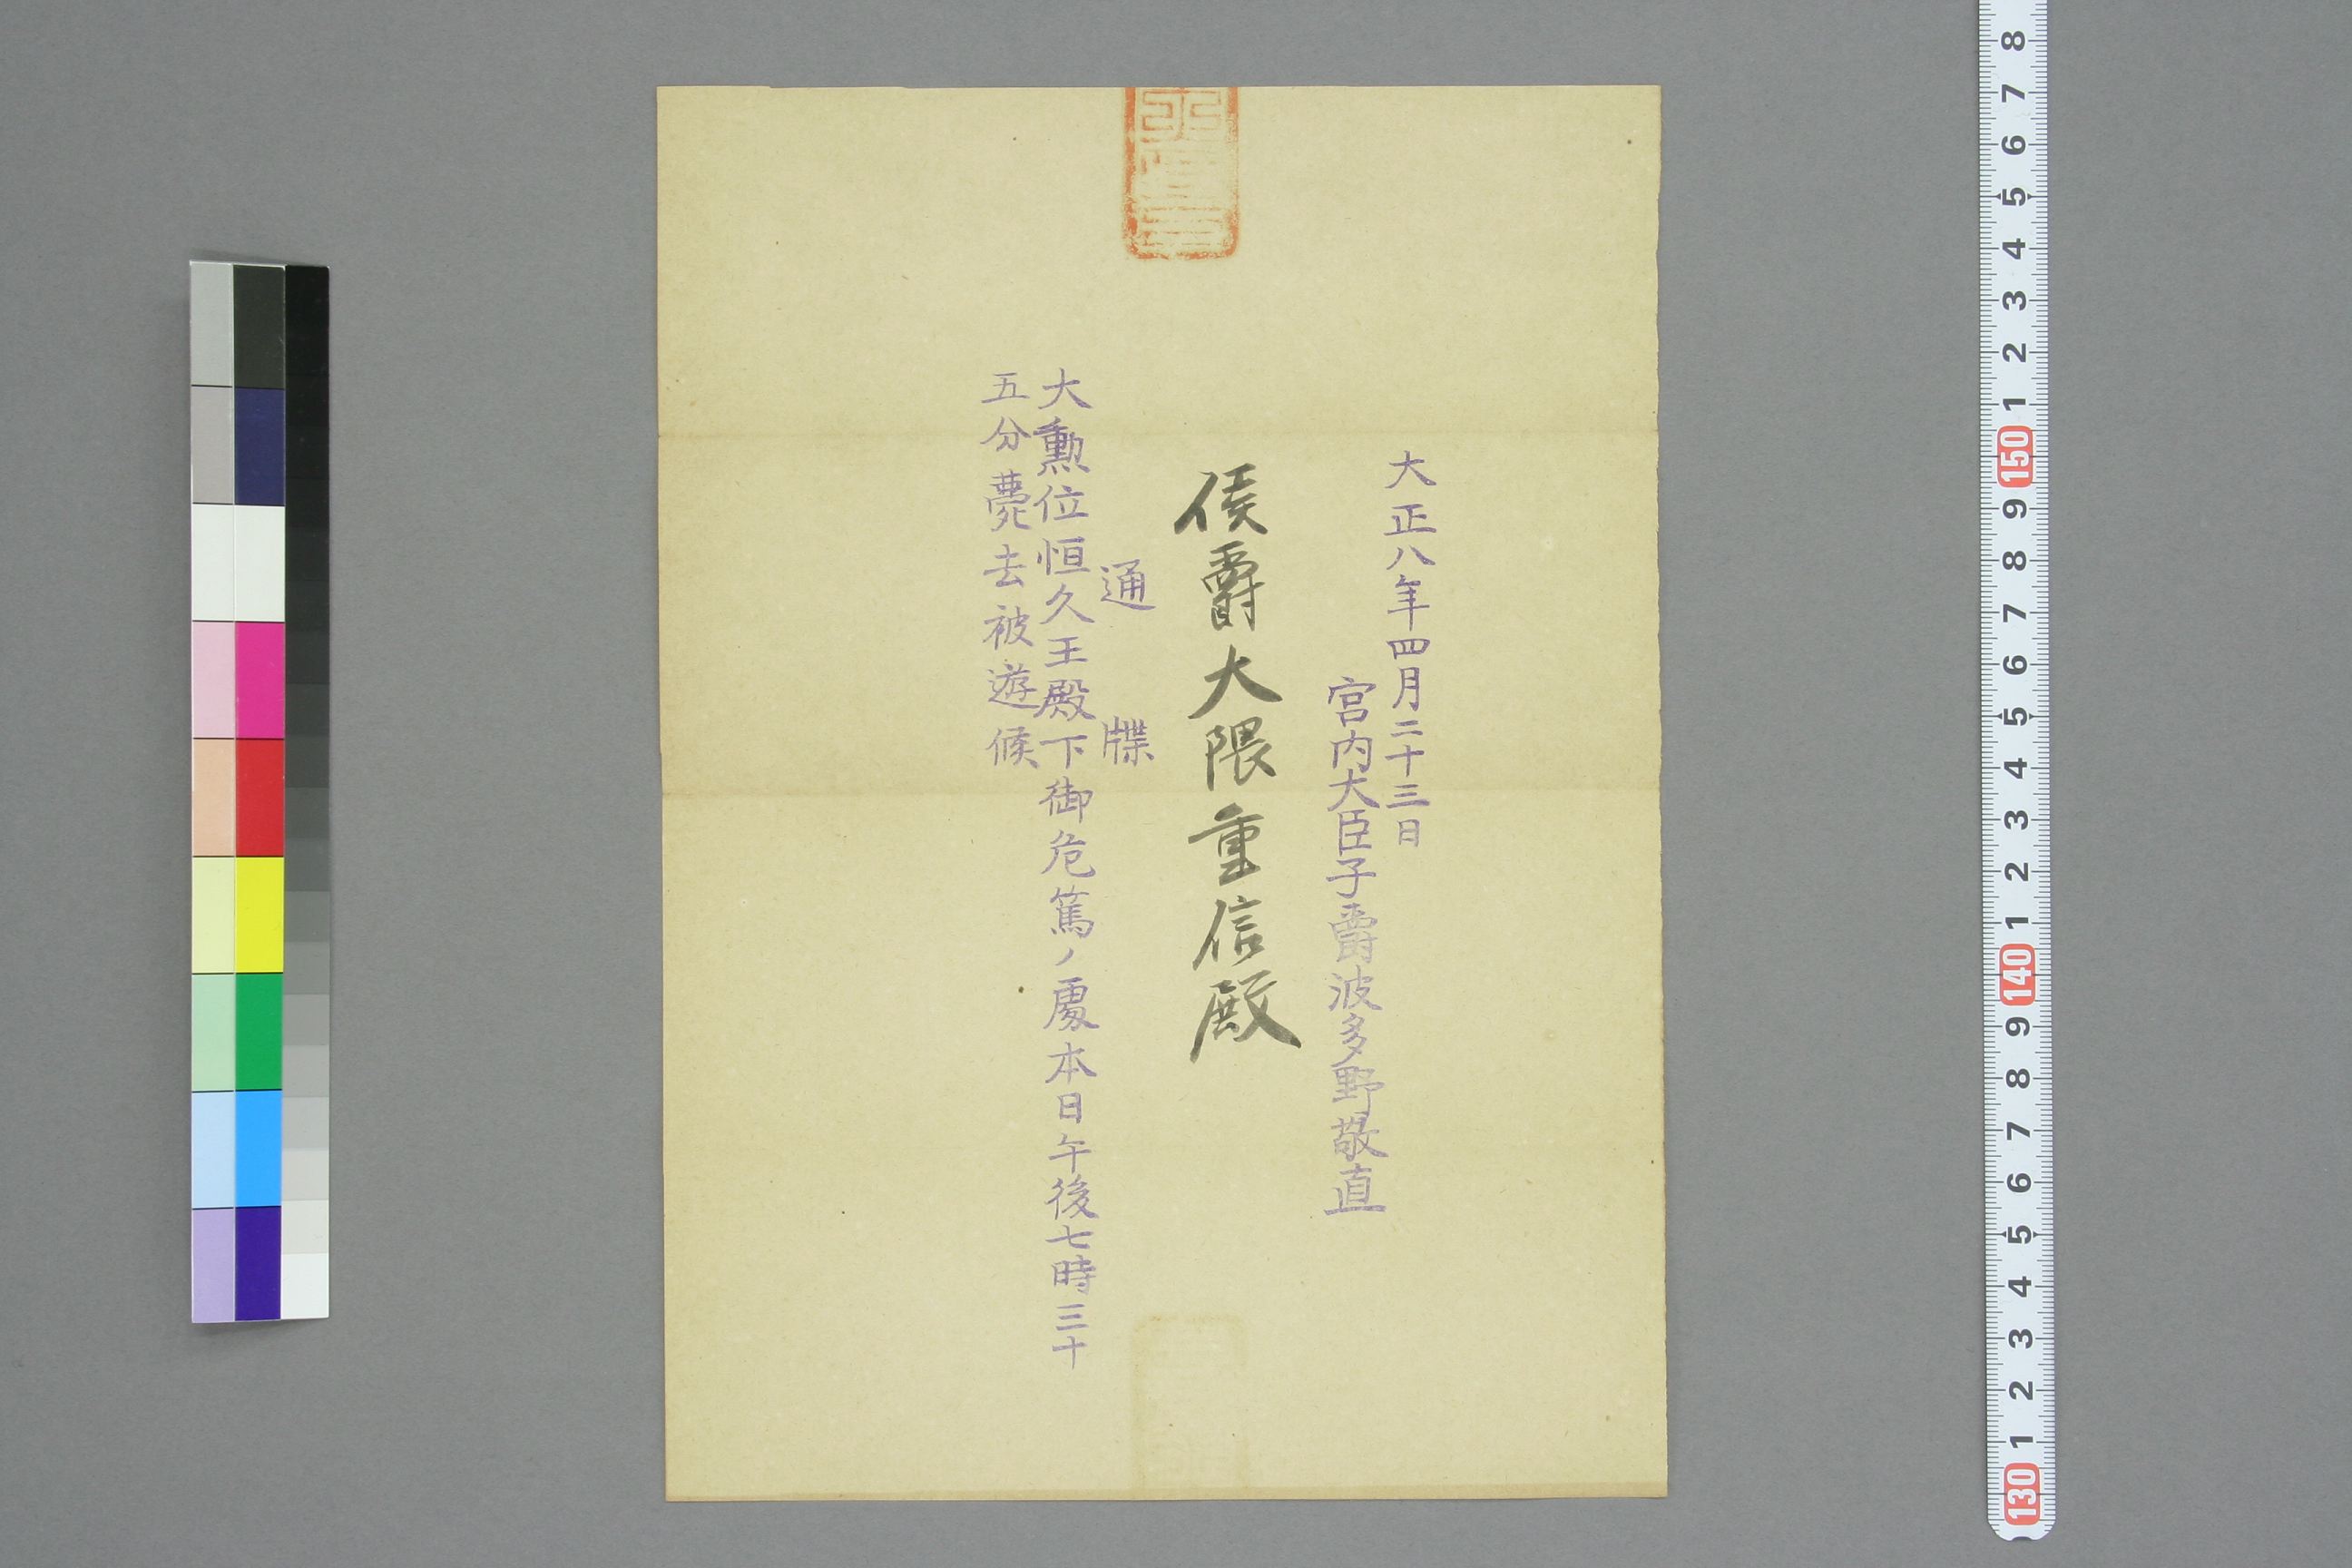 大正八年四月二十三日
宮内大臣子爵波多野敬直
侯爵大隈重信殿
通牒
大勲位恒久王殿下御危篤ノ處本日午後七時三十
五分薨去被遊候
8
7
6
5
4
3
2
1
150
9
8
7
6
5
4
3
2
1
140
9
8
7
6
5
4
3
2
1
130